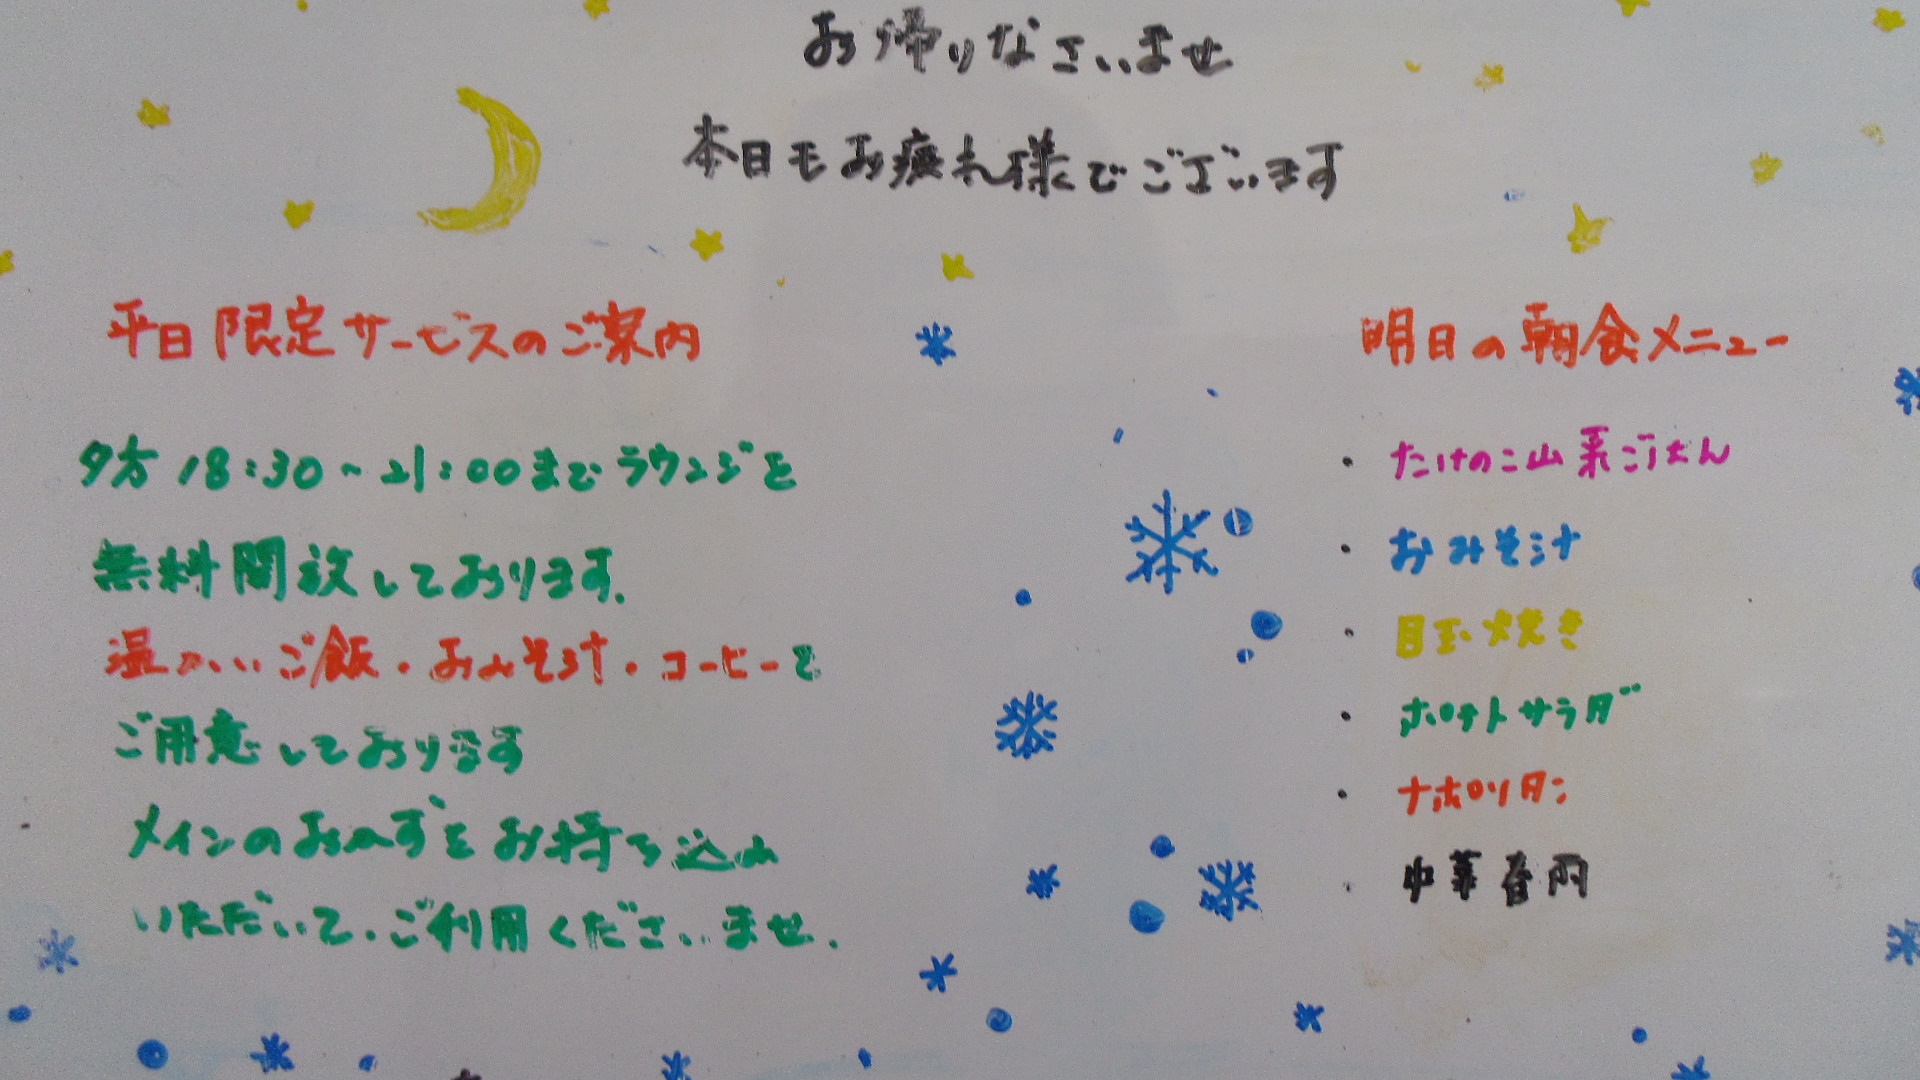 お帰りなさいませ
本日もお疲れ様でございます
平日限定サービスのご案内
夕方18:30~21:00までラウンジを
無料開放しております.
温かいご飯・おみそ汁・コーヒーを
ご用意しております
メインのおかずをお持ち込み
いただいて.ご利用くださいませ.
明日の朝食メニュー
・たけのこ山菜ごはん
・おみそ汁
・目玉焼き
・ポテトサラダ
・ナポリタン
・中華春雨